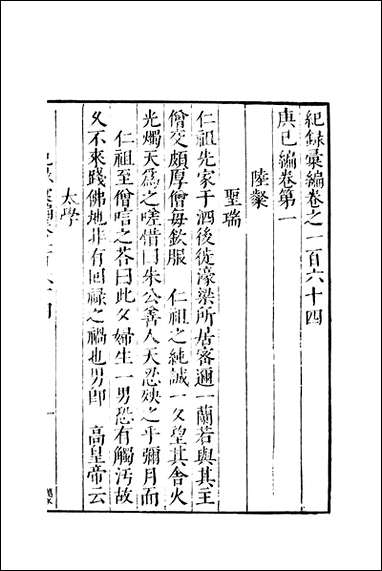 紀錄彙編卷之一百六十四
庚巳編卷第一
陸粲
聖瑞
仁祖先家于泗後徙濠梁所居密邇一蘭若與其主
僧交頗厚僧每欽服 仁祖之純誠一夕望其舍火
光燭天為之嗟惜曰朱公善人天忍殃之乎彌月而
仁祖至僧唁之荅曰此夕婦生一男恐有觸汚故
久不來踐佛地非有囘祿之禍也男卽 高皇帝云
太學